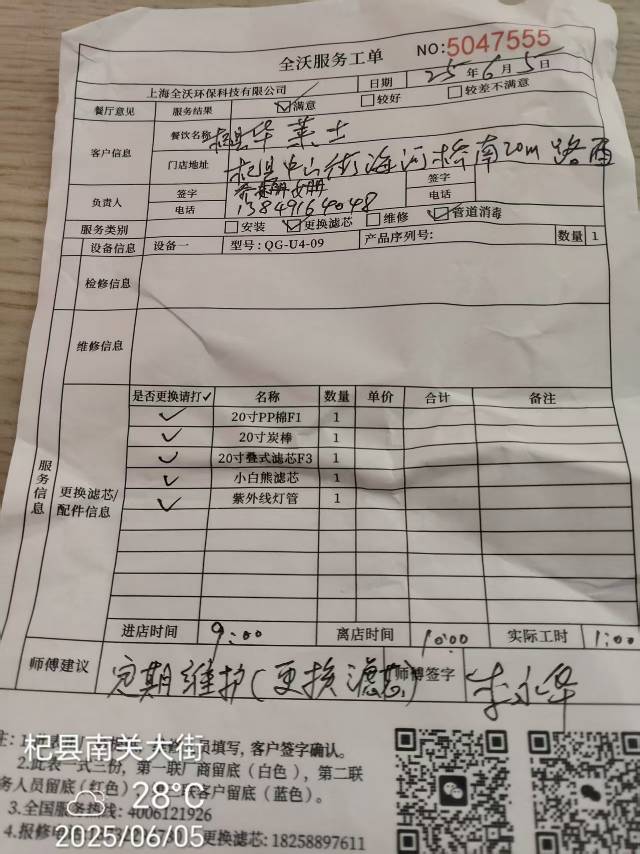 全沃服务工单
NO:5047555
上海全沃环保科技有限公司 日期 25年6月5日
餐厅意见 服务结果 ☑满意 □较好 □较差不满意
客户信息 餐饮名称 杞县华莱士
门店地址 杞县中山街海河桥南20m路西
负责人 签字 签字
电话 13849164048 电话
服务类别 □安装 ☑更换滤芯 □维修 ☑管道消毒
设备信息 设备一 型号:QG-U4-09 产品序列号: 数量 1
检修信息
维修信息
服务信息
更换滤芯/配件信息
是否更换请打✓ 名称 数量 单价 合计 备注
✓ 20寸PP棉F1 1
✓ 20寸炭棒 1
✓ 20寸叠式滤芯F3 1
✓ 小白熊滤芯 1
✓ 紫外线灯管 1
进店时间 9:00 离店时间 10:00 实际工时 1:00
师傅建议 定期维护(更换滤芯) 师傅签字 李永华
注:1. 员填写,客户签字确认。
2.此表一式三份,第一联厂商留底(白色),第二联
务人员留底(红色) 联客户留底(蓝色)。
3.全国服务热线:4006121926
4.报修电 更换滤芯:18258897611
杞县南关大街
28°C
2025/06/05